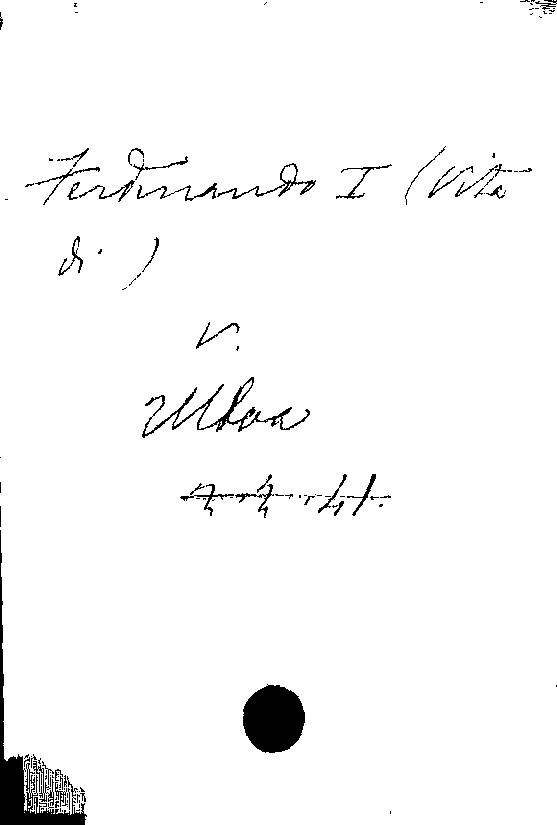 Ferdinando I (Vita
di)
v.
Ulloa